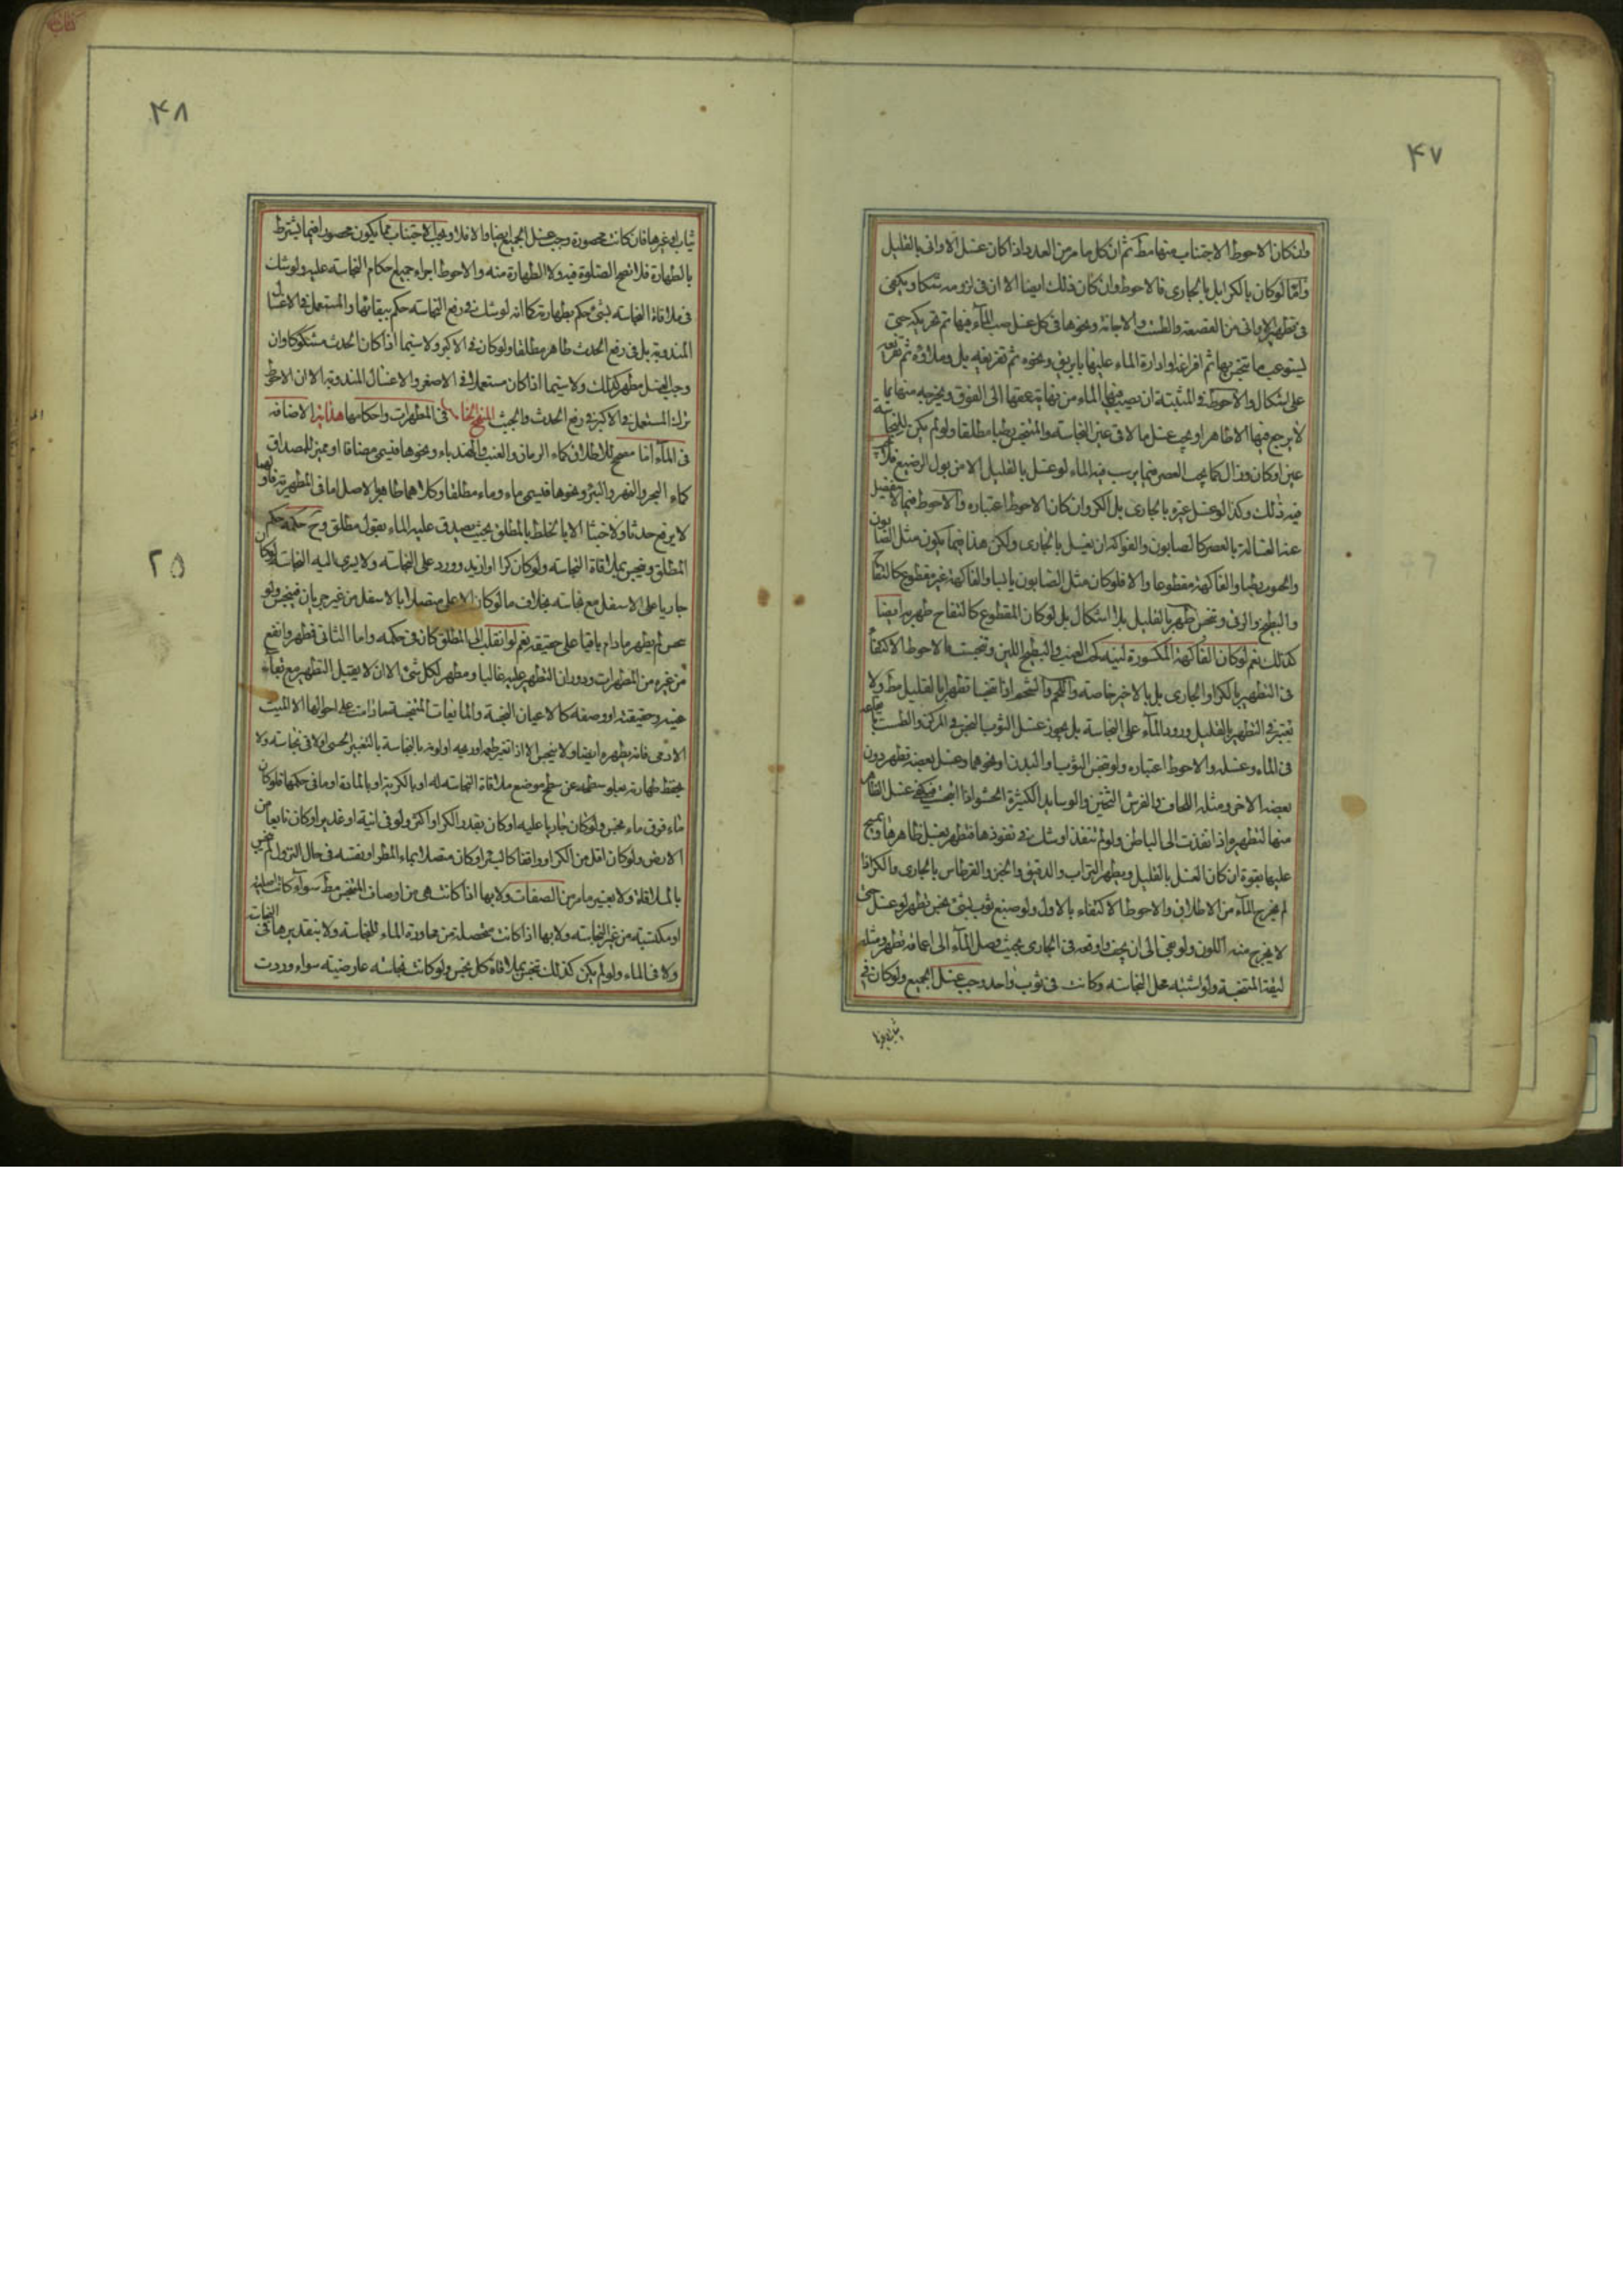 ۴۷
وان كان الاحوط الاجتناب منها مط ثم ان كل ما مر من العدد اذا كان غسل الاوانى بالقليل
واما لو كان بالكر بل بالجارى فالاحوط وان كان ذلك ايضا الا ان فى لزومه شكا ويكفى
فى تطهير الاوانى من القصعة والطست والاجانة ونحوها فى كل غسل صب الماء فيها ثم تحريكه حتى
يستوعب ما يتنجس بها ثم افراغه او ادارة الماء عليها بابريق ونحوه ثم تفريغه بل وملاؤه ثم تفريغه
على اشكال والاحوط فى المثبتة ان يصب فيها الماء من نهاية عمقها الى الفوق ويخرجه منها بما
لا يرجع فيها الا طاهرا ويجب غسل ما لاقى عين النجاسة والمتنجس رطبا مطلقا ولو لم يكن للنجاسة
عين او كان وزال كما يجب العصر فيما يرسب فيه الماء لو غسل بالقليل الا من بول الرضيع فلا يجب
فيه ذلك وكذا لو غسل غيره بالجارى بل الكر وان كان الاحوط اعتباره والاحوط فيما لا ينفصل
عنه الغسالة بالعصر كالصابون والفواكه ان يغسل بالجارى ولكن هذا فيما يكون مثل الصابون
والحبوب رطبا والفاكهة مقطوعا والا فلو كان مثل الصابون يابسا والفاكهة غير مقطوع كالتفاح
والبطيخ والرقى وتنجس طهر بالقليل بلا اشكال بل لو كان المقطوع كالتفاح طهر به ايضا
كذلك نعم لو كان الفاكهة المكسورة لينة كحب العنب والبطيخ اللين وتنجست فالاحوط الاكتفاء
فى التطهير بالكر او الجارى بل بالاخير خاصة واللحم والشحم اذا تنجسا تطهرا بالقليل مط ولا
يعتبر فى التطهير بالقليل ورود الماء على النجاسة بل يجوز غسل الثوب النجس فى المركن والطست
فى الماء وغسله والاحوط اعتباره ولو تنجس الثوب او البدن او نحوهما وغسل بعضه تطهر دون
بعضه الاخر ومثله اللحاف والفرش الثخين والوسايد الكثيرة الحشو اذا تنجست فيكفى غسل الظاهر
منها لتطهيره اذا نفذت الى الباطن ولو لم تنفذ او شك فى نفوذها فتطهر بغسل ظاهرها ويمسح
عليها بقوة ان كان الغسل بالقليل ويطهر التراب والدقيق والخبز والقرطاس بالجارى والكر اذا
لم يخرج الماء من الاطلاق والاحوط الاكتفاء بالاول ولو صبغ ثوب بشئ نجس تطهر لو غسل حتى
لا يخرج منه اللون ولو عجن الى ان يجف واوقعه فى الجارى بحيث وصل الماء الى اعماقه تطهر ومثله
ليقة المتنجسة ولو اشتبه محل النجاسة وكانت فى ثوب واحد وجب غسل الجميع ولو كان فى
ثياب او غيرها
۴۸
ثياب او غيرها فان كانت محصورة وجب غسل الجميع ايضا والا فلا ويجب الاجتناب مما يكون محصورا فيما يشترط
بالطهارة فلا تصح الصلوة فيه ولا الطهارة منه والاحوط اجراء جميع احكام النجاسة عليه ولو شك
فى ملاقاة النجاسة بشئ حكم بطهارته كما انه لو شك فى رفع النجاسة حكم ببقائها والمستعمل فى الاغسال
المندوبة بل فى رفع الحدث طاهر مطلقا ولو كان فى الاكبر ولا سيما اذا كان الحدث مشكوكا وان
وجب الغسل مطهر كذلك ولا سيما اذا كان مستعملا فى الاصغر والاغسال المندوبة الا ان الاحوط
ترك المستعمل فى الاكبر فى رفع الحدث والخبث المنهج الخامس فى المطهرات واحكامها هداية الاضافة
فى الماء اما مصحح للاطلاق كماء الرمان والعنب والهندباء ونحوها فيسمى مضافا او مميز للمصداق
كماء البحر والنهر والبئر ونحوها فيسمى ماء وماء مطلقا وكلاهما طاهر بالاصل اما فى المطهرية فالاول
لا يرفع حدثا ولا خبثا الا بالخلط بالمطلق بحيث يصدق عليه الماء بقول مطلق وح حكمه حكم
المطلق وينجس بملاقاة النجاسة ولو كان كرا او ازيد وورد على النجاسة ولا يسرى اليه النجاسة لو كان
جاريا على الاسفل مع نجاسته بخلاف ما لو كان الاعلى متصلا بالاسفل من غير جريان فينجس ولو
نجس لم يطهر ما دام باقيا على حقيقته نعم لو انقلب الى المطلق كان فى حكمه واما الثانى فطهر وانفع
من غيره من المطهرات ودوران التطهير عليه غالبا ومطهر لكل شئ الا ان لا يقبل التطهير مع بقاء
عينه وحقيقته او وصفه كالاعيان النجسة والمايعات المتنجسة ما دامت على احوالها الا الميت
الادمى فانه يطهره ايضا ولا ينجس الا اذا تغير طعمه او ريحه او لونه بالنجاسة بالتغيير الحسى او لاقى نجاسة ولا
يحفظ طهارته بعلو سطحه عن سطح موضع ملاقاة النجاسة له او بالكرية او بالمادة او ما فى حكمها فلو كان
ماء فوق ماء نجس ولو كان جاريا عليه او كان بقدر الكر او اكثر ولو فى انية او غدير او كان نابعا من
الارض ولو كان اقل من الكر او واقفا كالبئر او كان متصلا بماء المطر او نفسه فى حال النزول لم ينجس
بالملاقاة ولا بغير ما مر من الصفات ولا بها اذا كانت هى من اوصاف المتنجس مط سواء كانت اصلية
او مكتسبة من غير النجاسة ولا بها اذا كانت متحصلة من مجاورة الماء للنجاسة ولا بتقديرها فى النجاسة
ولا فى الماء ولو لم يكن كذلك تنجس بملاقاة كل نجس ولو كانت نجاسته عارضية سواء وردت
۲۵